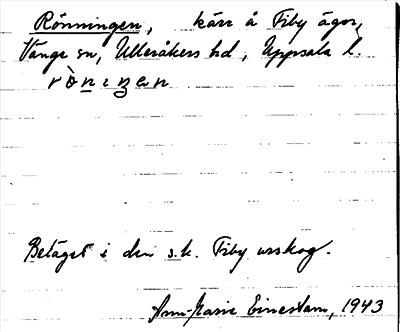 Rönningen, kärr å Fiby ägor,
Vänge sn, Ulleråkers hd, Uppsala l.
rö̀niŋan
Beläget i den s.k. Fiby urskog.
Ann-Marie Einestam, 1943